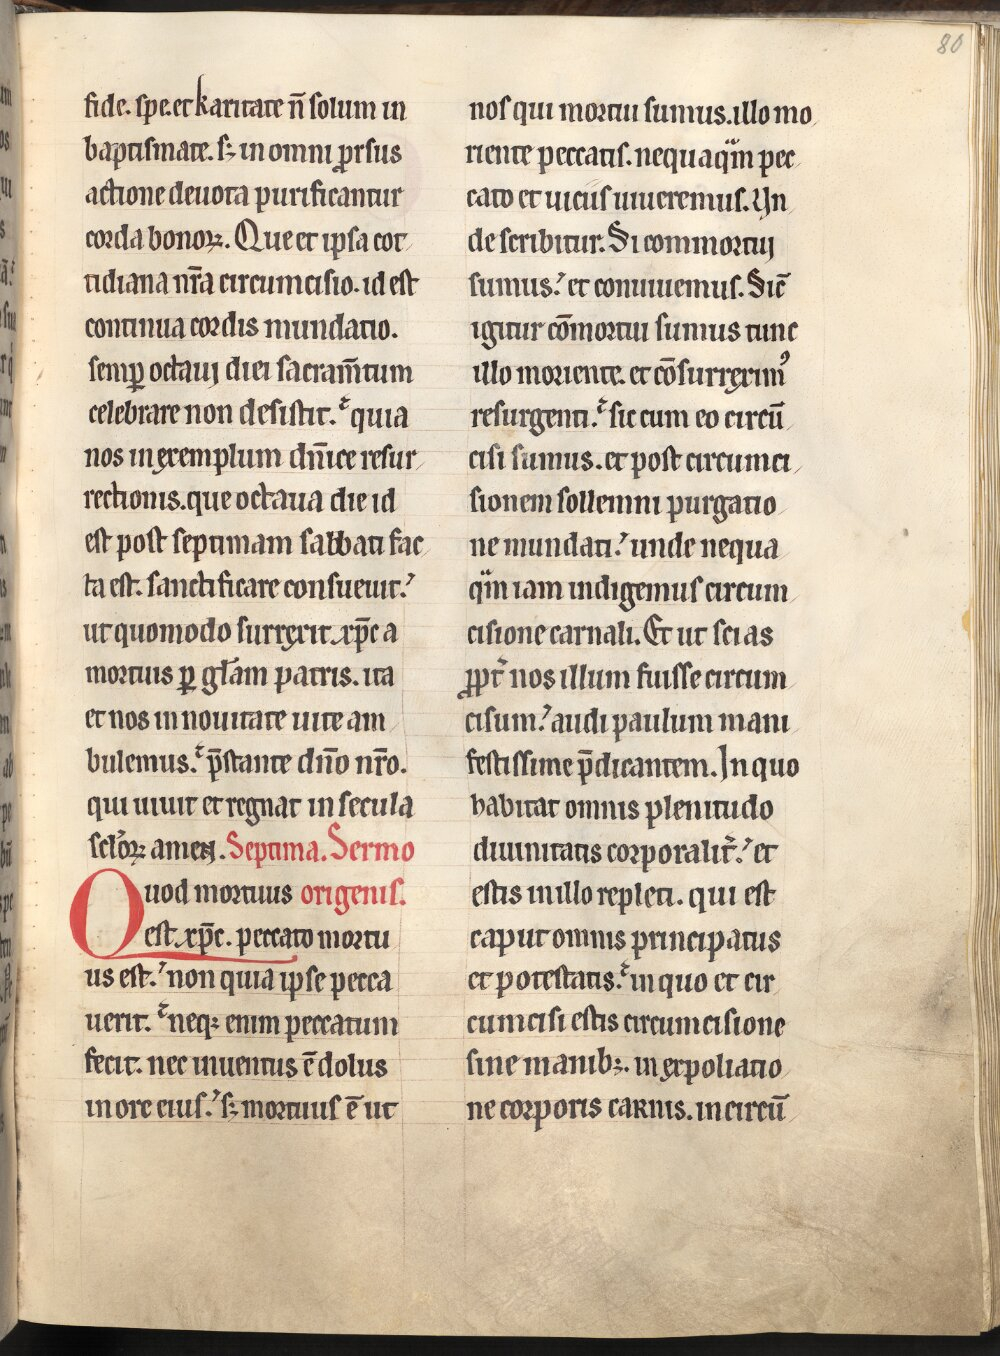 80
fide. spe. et karitate n̄ solum in
baptismate. sꝫ in omni ꝓrsus
actione deuota purificantur
corda bonoꝝ. Que et ipsa cot
tidiana nr̄a circumcisio. id est
continua cordis mundatio.
semꝑ octauj diei sacram̄tum
celebrare non desistit. quia
nos in exemplum dn̄ice resur
rectionis. que octaua die id
est post septimam sabbati fac
ta est. sanctificare consueuit.
ut quomodo surrexit xp̄c a
mortuis ꝑ gl̄am patris. ita
et nos in nouitate uite am
bulemus. p̄stante dn̄o nr̄o.
qui uiuit et regnat in secula
scl̓oꝝ amen. Septima. Sermo
Quod mortuus origenis.
est xp̄c. peccato mortu
us est. non quia ipse pecca
uerit. neqꝫ enim peccatum
fecit. nec inuentus ē dolus
in ore eius. sꝫ mortuus ē ut
nos qui mortui sumus. illo mo
riente peccatis. nequaqm̄ pec
cato et uiciis uiueremus. Un
de scribitur. Si commortuj
sumus. et conuiuemus. Sic̄
igitur cōmortui sumus tunc
illo moriente. et cōsurrexim᾽
resurgenti. sic cum eo circū
cisi sumus. et post circumci
sionem sollemni purgatio
ne mundati. unde nequa
qm̄ iam indigemus circum
cisione carnali. Et ut scias
ꝓpt̓ nos illum fuisse circum
cisum. audi paulum mani
festissime p̄dicantem. In quo
habitat omnis plenitudo
diuinitatis corporalit̓. et
estis in illo repleti. qui est
caput omnis principatus
et potestatis. in quo et cir
cumcisi estis circumcisione
sine manibꝫ. in expoliatio
ne corporis carnis. in circū